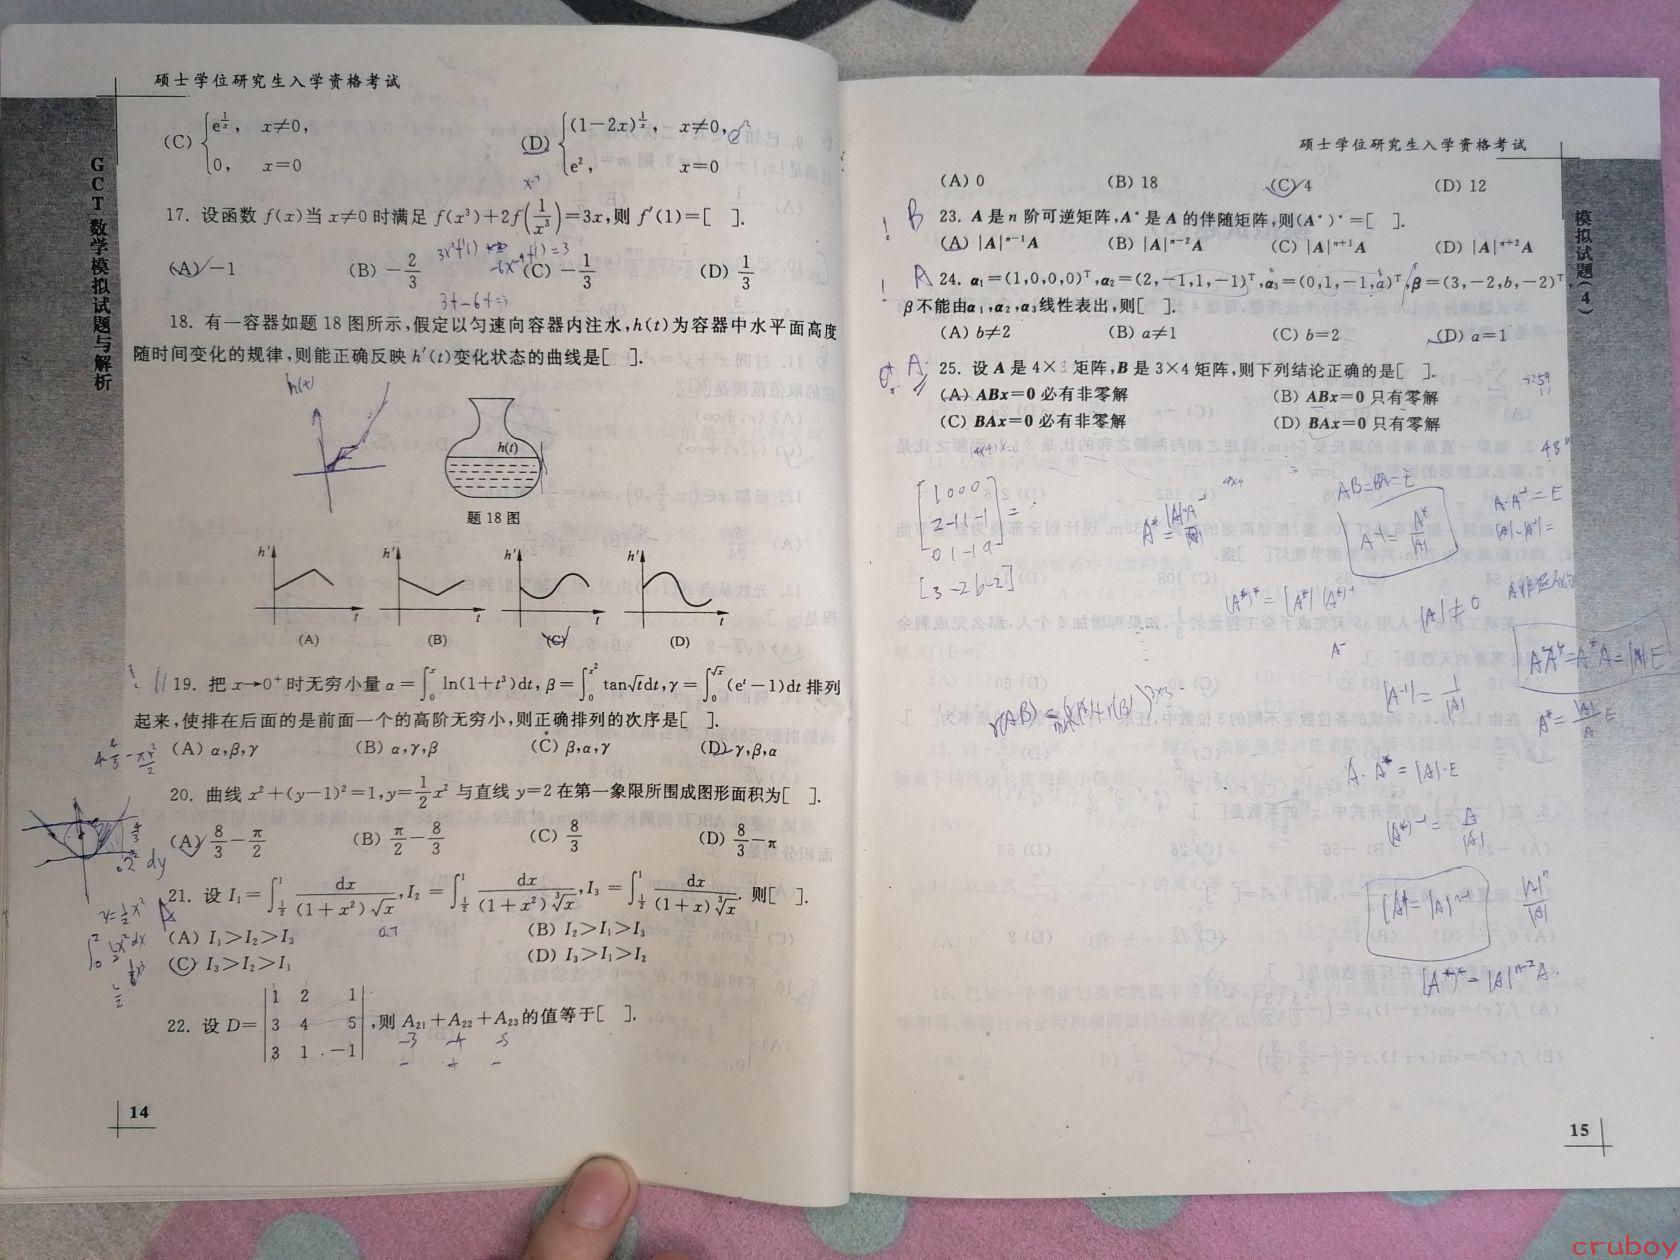 硕士学位研究生入学资格考试
GCT数学模拟试题与解析
(C) {e^{1/x}, x≠0,
0, x=0
(D) {(1-2x)^{1/x}, x≠0,
e², x=0
17. 设函数 f(x)当 x≠0 时满足 f(x³)+2f(1/x³)=3x,则 f′(1)=[ ].
(A) -1 (B) -2/3 (C) -1/3 (D) 1/3
18. 有一容器如题 18 图所示,假定以匀速向容器内注水,h(t)为容器中水平面高度
随时间变化的规律,则能正确反映 h′(t)变化状态的曲线是[ ].
h(t)
h(t)
题 18 图
h′ t h′ t h′ t h′ t
(A) (B) (C) (D)
19. 把 x→0⁺时无穷小量 α=∫₀ˣ ln(1+t³)dt, β=∫₀^{x²} tan√t dt, γ=∫₀^{√x} (eᵗ-1)dt 排列
起来,使排在后面的是前面一个的高阶无穷小,则正确排列的次序是[ ].
(A) α,β,γ (B) α,γ,β (C) β,α,γ (D) γ,β,α
20. 曲线 x²+(y-1)²=1,y=1/2 x² 与直线 y=2 在第一象限所围成图形面积为[ ].
(A) 8/3-π/2 (B) π/2-8/3 (C) 8/3 (D) 8/3-π
21. 设 I₁=∫_{1/2}^1 dx/((1+x²)√x), I₂=∫_{1/2}^1 dx/((1+x²)∛x), I₃=∫_{1/2}^1 dx/((1+x)∛x). 则[ ].
(A) I₁>I₂>I₃ (B) I₂>I₁>I₃
(C) I₃>I₂>I₁ (D) I₃>I₁>I₂
22. 设 D=|1 2 1
3 4 5
3 1 -1|,则 A₂₁+A₂₂+A₂₃的值等于[ ].
-3 -4 -5
- + -
14
硕士学位研究生入学资格考试
模拟试题(4)
(A) 0 (B) 18 (C) 4 (D) 12
B 23. A 是 n 阶可逆矩阵,A* 是 A 的伴随矩阵,则(A*)*=[ ].
(A) |A|ⁿ⁻¹A (B) |A|ⁿ⁻²A (C) |A|ⁿ⁺¹A (D) |A|ⁿ⁺²A
A 24. α₁=(1,0,0,0)ᵀ,α₂=(2,-1,1,-1)ᵀ,α₃=(0,1,-1,a)ᵀ,β=(3,-2,b,-2)ᵀ,
β不能由α₁,α₂,α₃线性表出,则[ ].
(A) b≠2 (B) a≠1 (C) b=2 (D) a=1
A 25. 设 A 是 4×3 矩阵,B 是 3×4 矩阵,则下列结论正确的是[ ].
(A) ABx=0 必有非零解 (B) ABx=0 只有零解
(C) BAx=0 必有非零解 (D) BAx=0 只有零解
AB=BA=E
A·A⁻¹=E
A⁻¹=A*/|A|
|A|·|A⁻¹|=
(A*)*=|A*|(A*)⁻¹
|A|≠0
AA*=A*A=|A|E
|A⁻¹|=1/|A|
A·A*=|A|·E
(A*)⁻¹=A/|A|
|A*|=|A|ⁿ⁻¹
(A*)*=|A|ⁿ⁻²A
15
cruboy